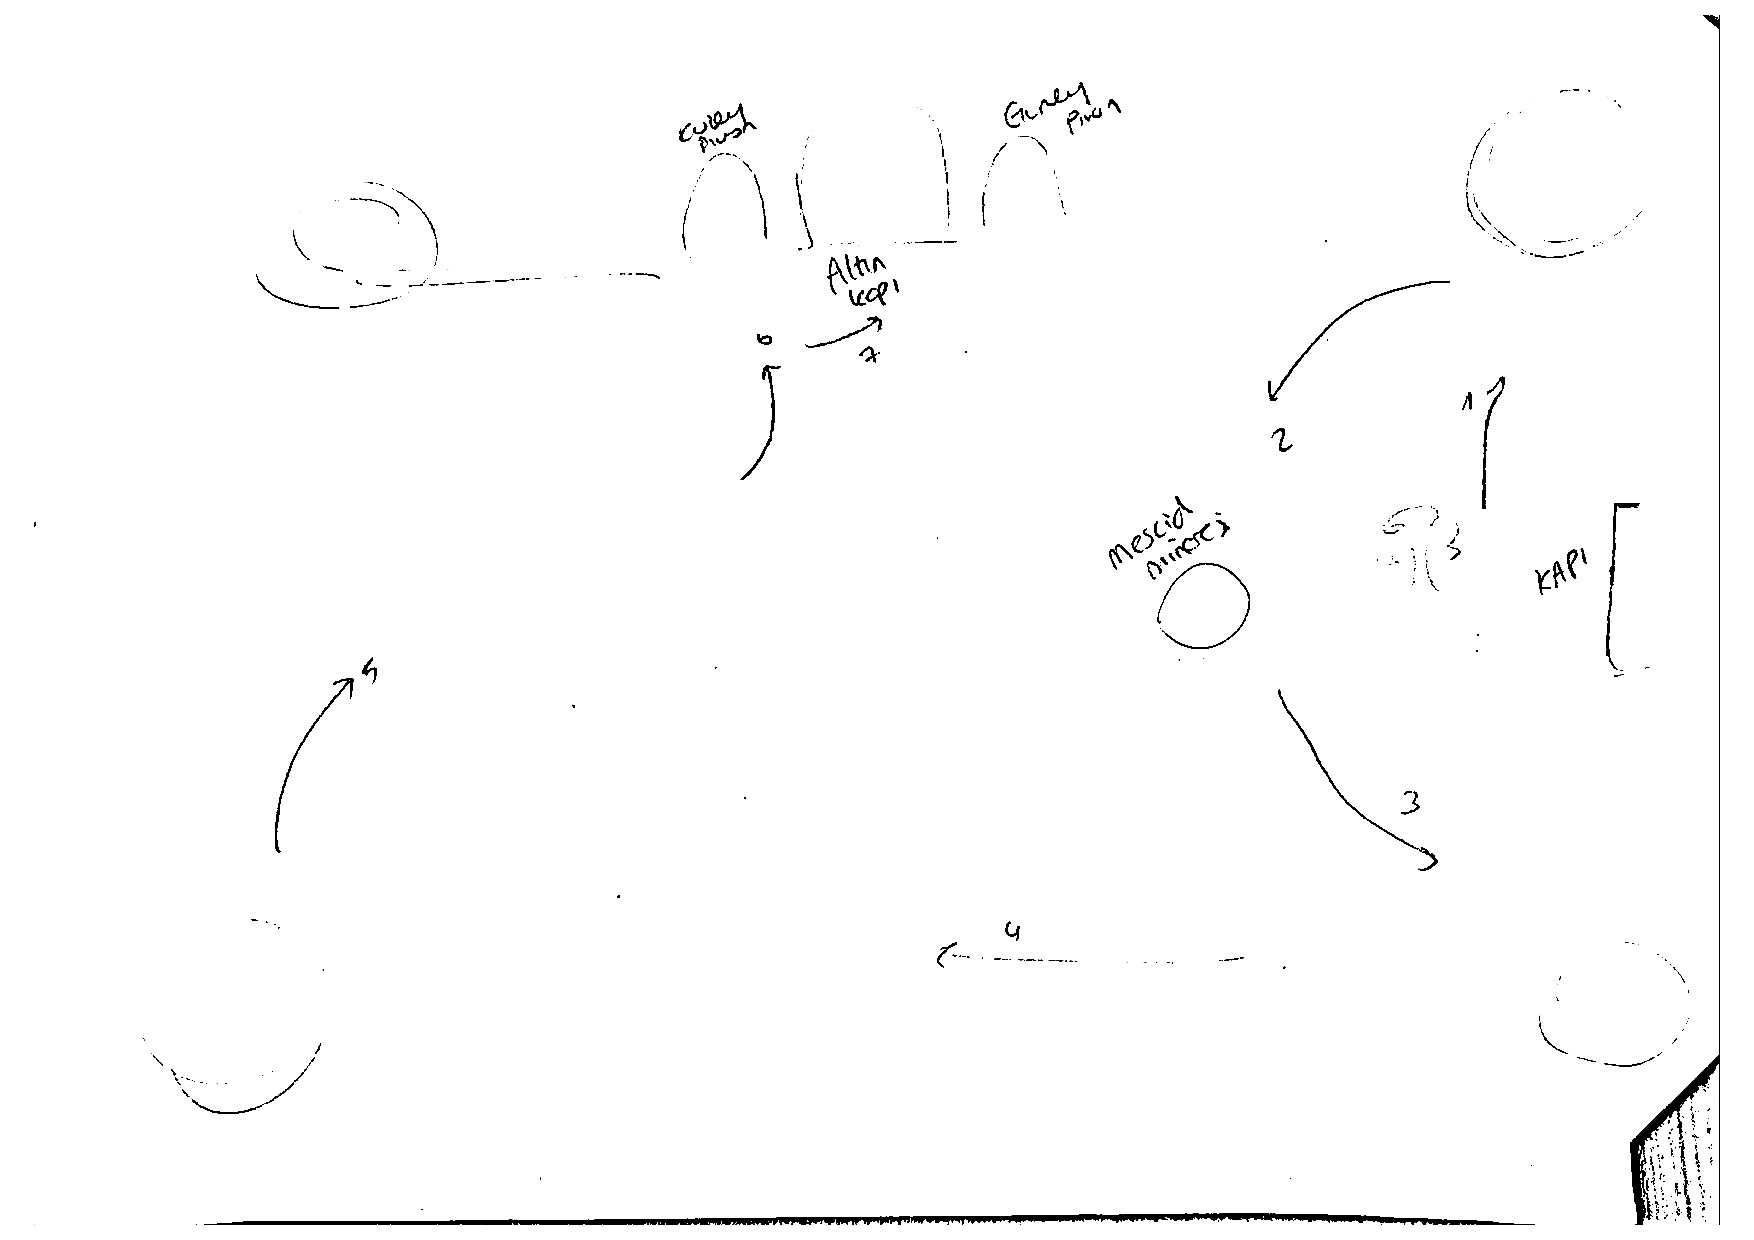 Kuzey
Pylon
Güney
Pylon
Altın
Kapı
6
7
1
2
Mescid
Minaresi
KAPI
5
3
4